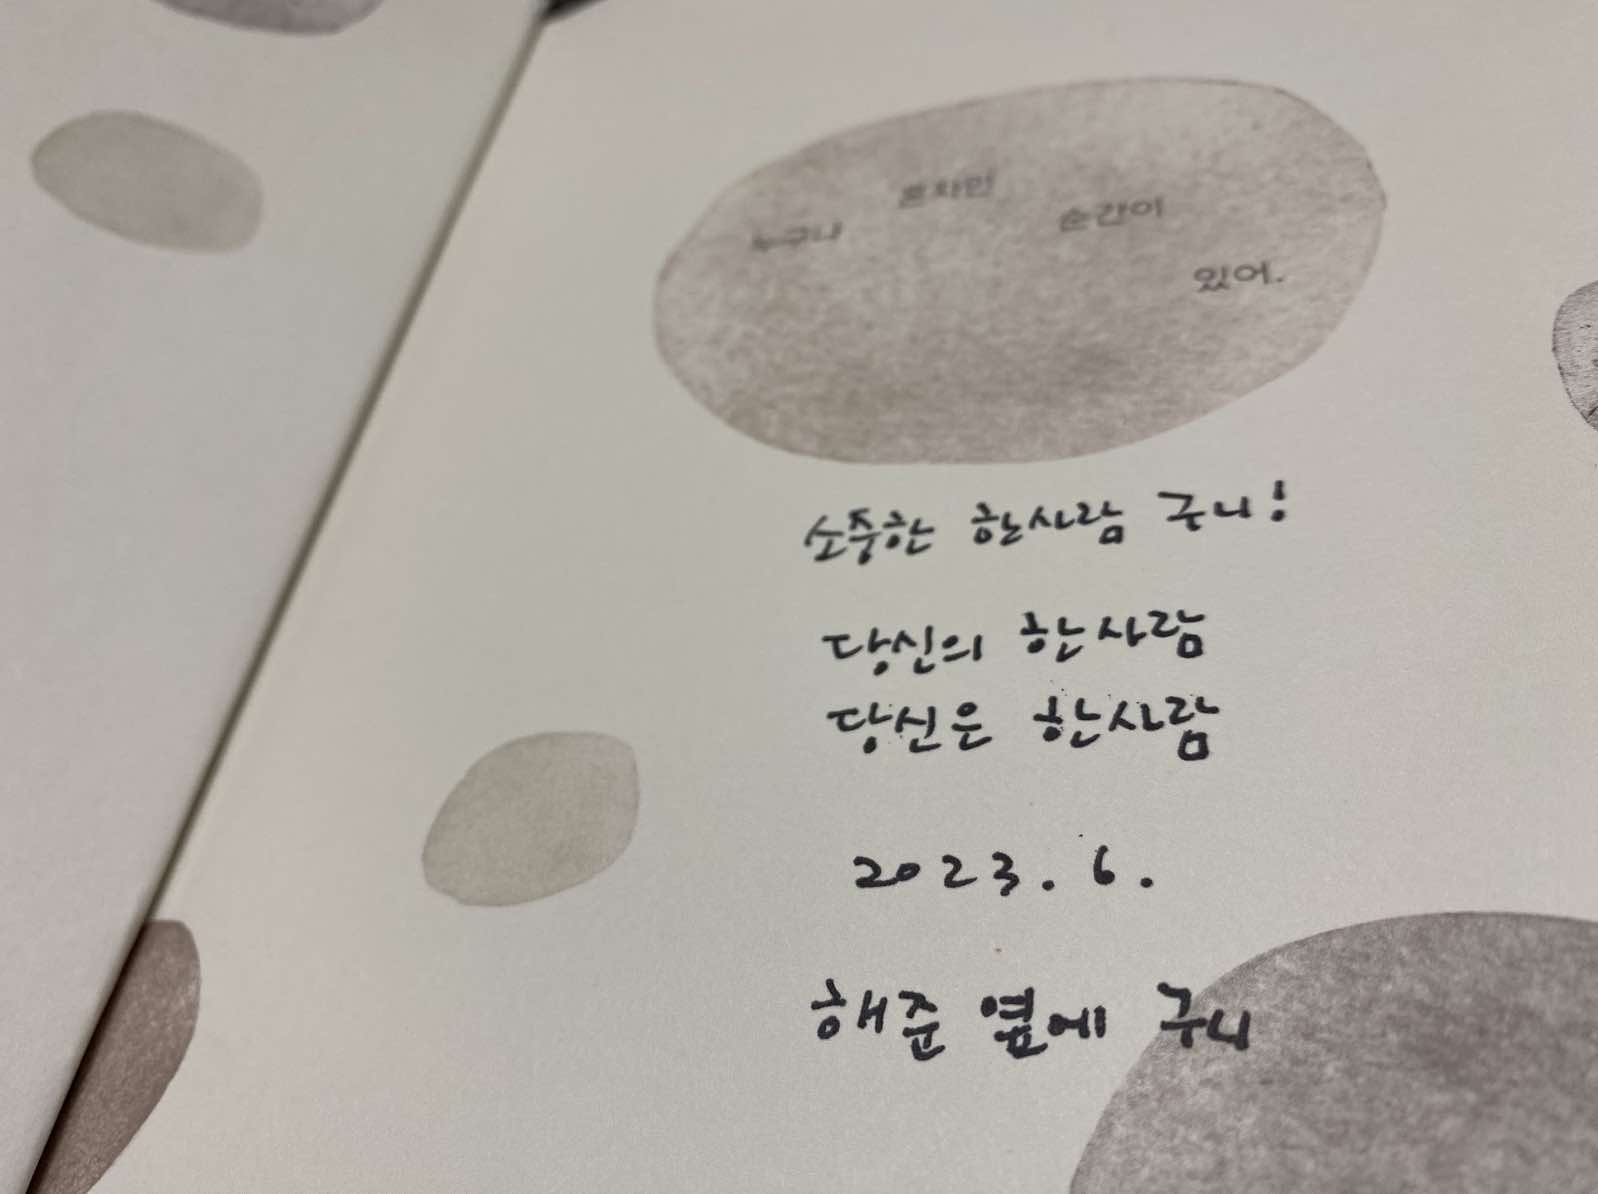 누구나 혼자인 순간이 있어.
소중한 한사람 구니!
당신의 한사람
당신은 한사람
2023. 6.
해준 옆에 구니